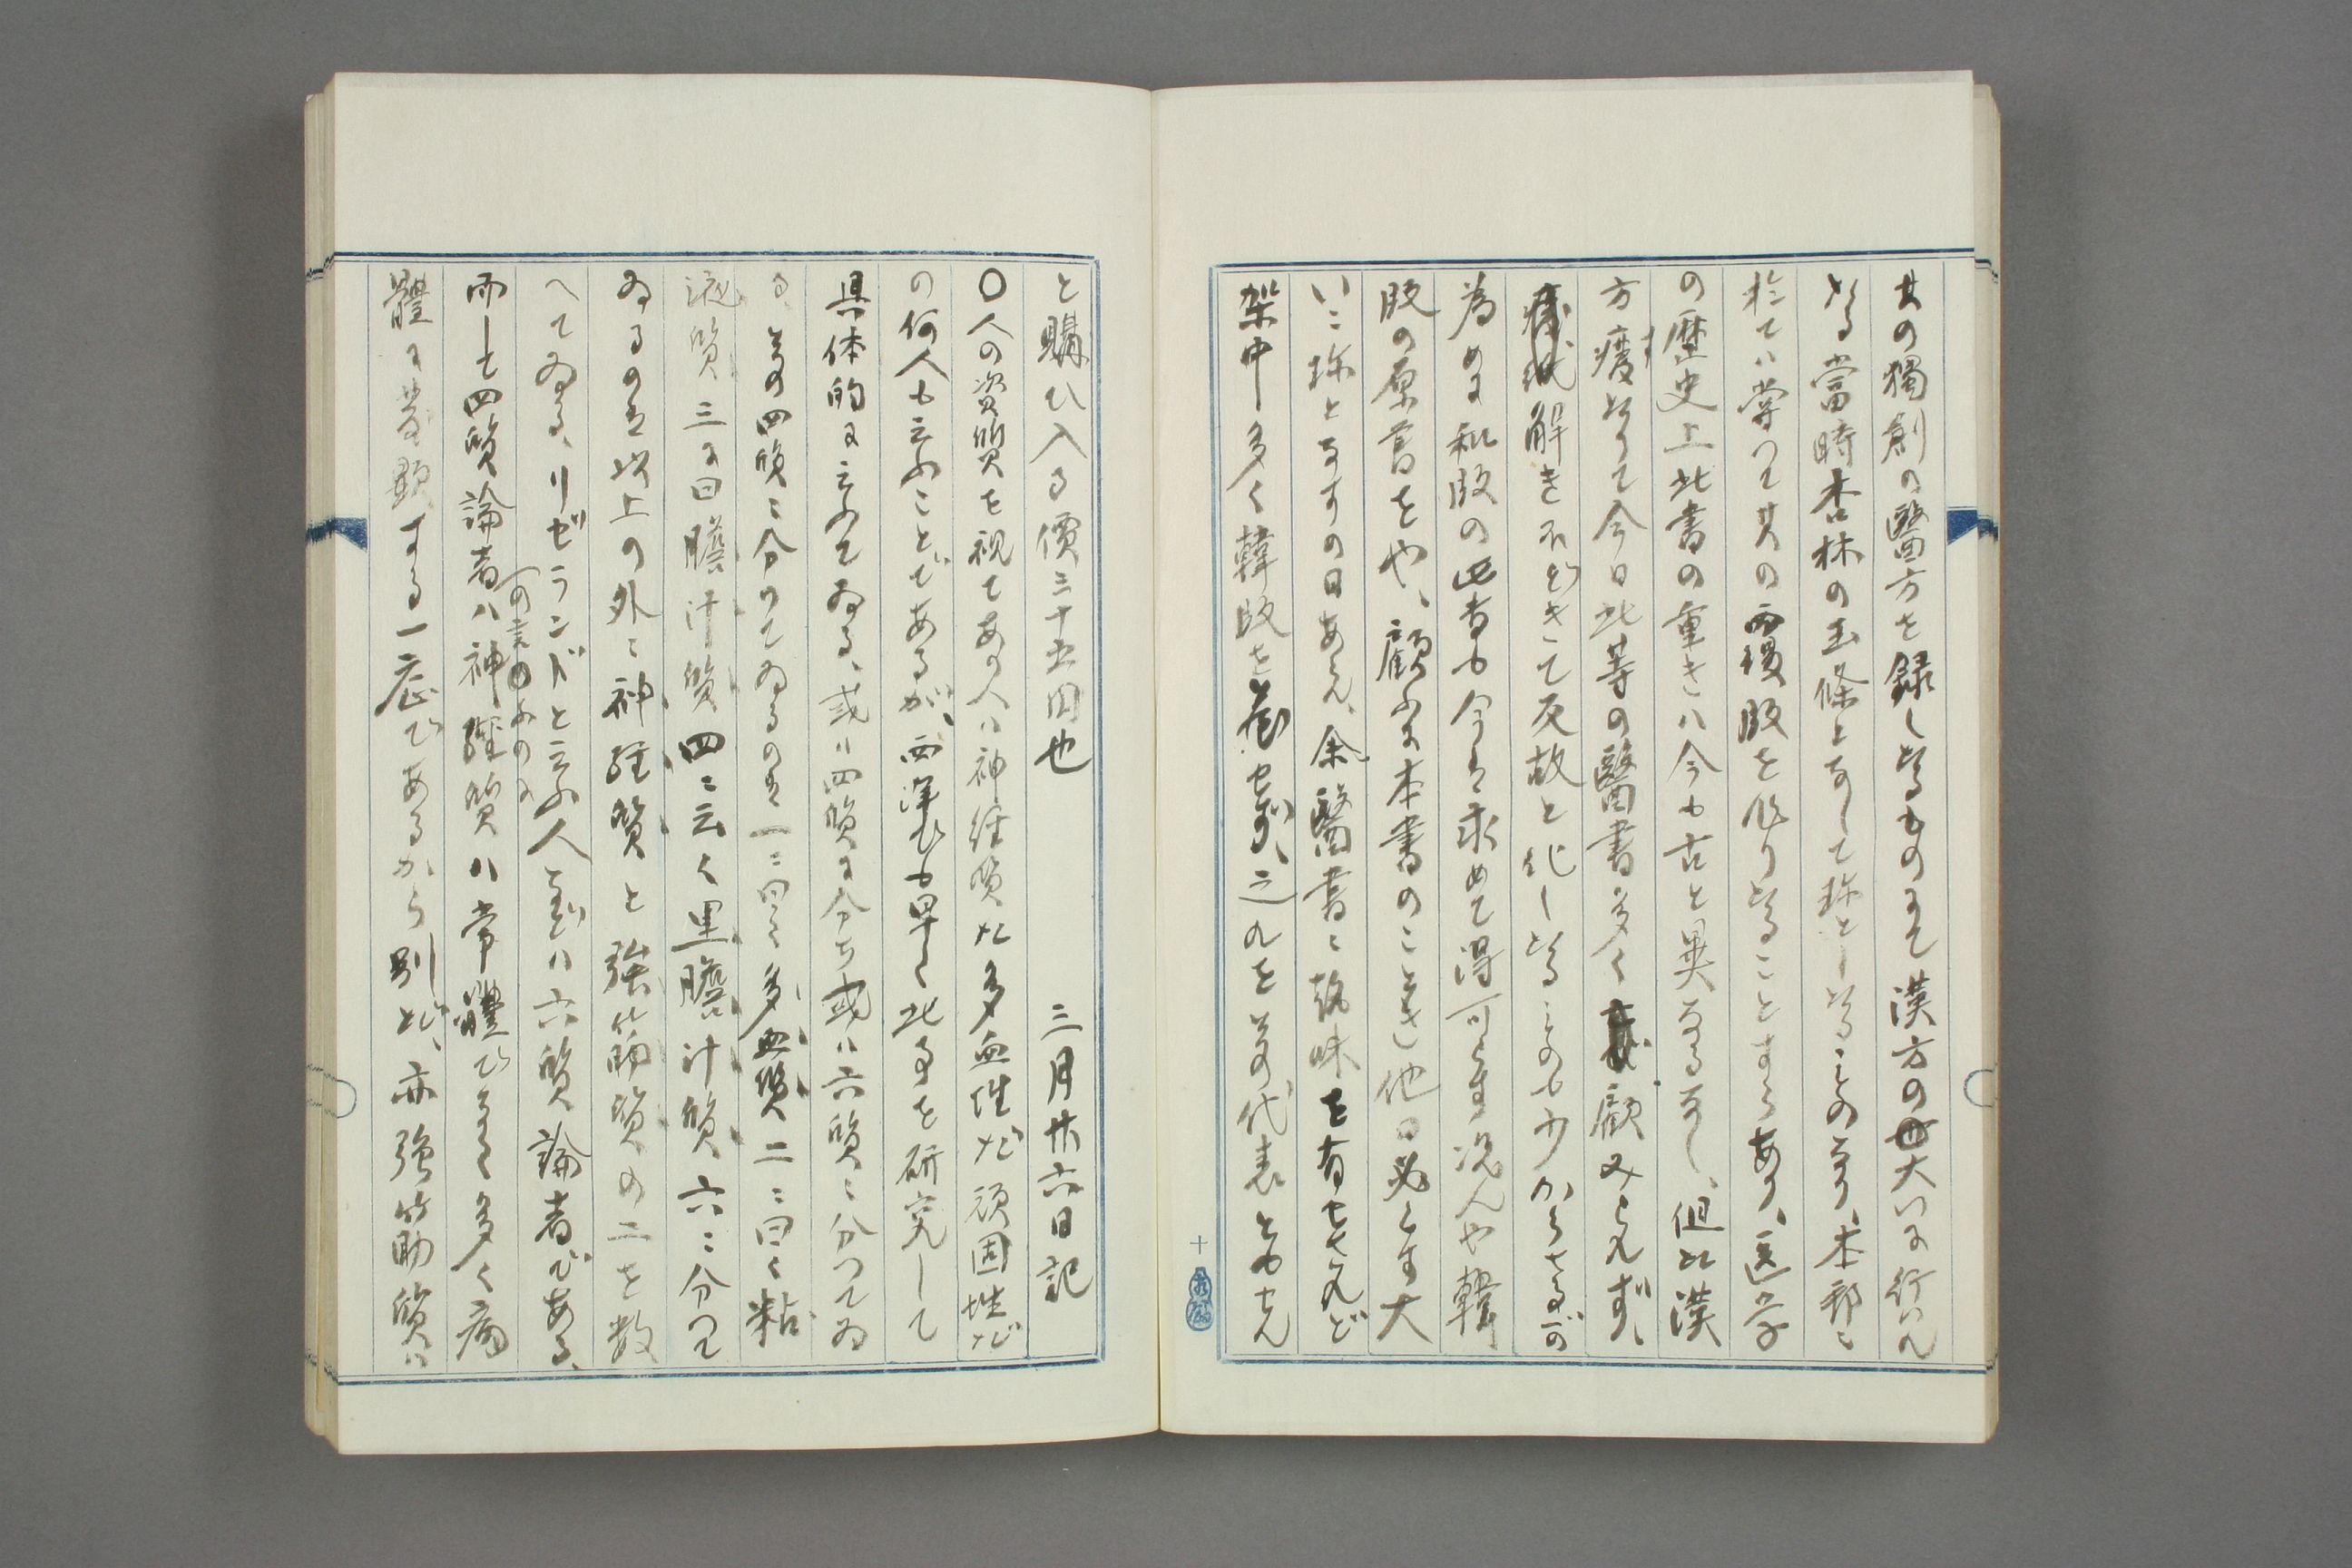 其の獨創の醫方を録し背るものにて漢方の大いに行はれ
たる當時杏林の玉條となして珍とし背るものなり、本邦に
於ては嘗つて其の覆版を作りたることすらあり、医学
の歴史上此書の重きハ今も古と異なるなし、但此漢
方廃りて今日此等の醫書多く顧みられず、
解きほどきて反故と化したるもの少からざるが
為めに和版の此書も今は求めて得可らず况んや韓
版の原書をや、顧ふに本書のごとき他日必らず大
いに珍となすの日あらん、余醫書に趣味を有せざれど
架中多く韓版を蔵せず、之れを其の代表とせん
と購ひ入る價三十五円也 三月廿六日記
〇人の資質を視てあの人は神経質だ多血性だ頑固性だ
の何人も云ふことであるが、西洋でも早く此事を研究して
具体的に云ふてゐる、或は四質に分ち或は六質に分つてゐ
る、其の四質に分けてゐるのは一に曰く多血質二に曰く粘
液質三に曰膽汁質四に云く黒膽汁質六に分つて
ゐるのは以上の外に神経質と強筋質の二を数
へてゐる、リゼランドと云ふ人などは六質論者である、
而して四質論者は神經質は常體でなく多く病
體に發顕する一症であるから別だ、亦強筋質は